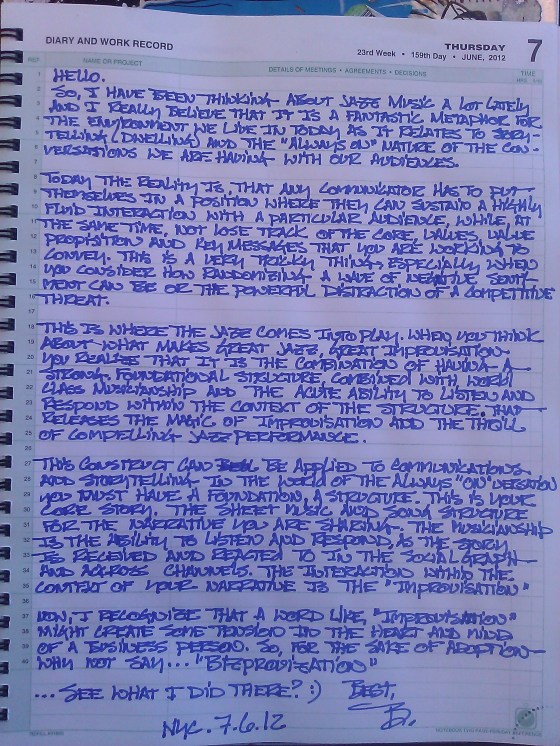 DIARY AND WORK RECORD
THURSDAY 7
23rd Week • 159th Day • JUNE, 2012
REF NAME OR PROJECT DETAILS OF MEETINGS • AGREEMENTS • DECISIONS TIME
HELLO.
SO, I HAVE BEEN THINKING ABOUT JAZZ MUSIC A LOT LATELY
AND I REALLY BELIEVE THAT IT IS A FANTASTIC METAPHOR FOR
THE ENVIRONMENT WE LIVE IN TODAY AS IT RELATES TO STORY-
TELLING (DWELLING) AND THE "ALWAYS ON" NATURE OF THE CON-
VERSATIONS WE ARE HAVING WITH OUR AUDIENCES.
TODAY THE REALITY IS, THAT ANY COMMUNICATOR HAS TO PUT
THEMSELVES IN A POSITION WHERE THEY CAN SUSTAIN A HIGHLY
FLUID INTERACTION WITH A PARTICULAR AUDIENCE, WHILE, AT
THE SAME TIME, NOT LOSE TRACK OF THE CORE, VALUES, VALUE
PROPOSITION AND KEY MESSAGES THAT YOU ARE WORKING TO
CONVEY. THIS IS A VERY TRICKY THING, ESPECIALLY WHEN
YOU CONSIDER HOW RANDOMIZING A WAVE OF NEGATIVE SENTI-
MENT CAN BE OR THE POWERFUL DISTRACTION OF A COMPETITIVE
THREAT.
THIS IS WHERE THE JAZZ COMES INTO PLAY. WHEN YOU THINK
ABOUT WHAT MAKES GREAT JAZZ, GREAT IMPROVISATION
YOU REALIZE THAT IT IS THE COMBINATION OF HAVING A
STRONG, FOUNDATIONAL STRUCTURE, COMBINED WITH WORLD
CLASS MUSICIANSHIP AND THE ACUTE ABILITY TO LISTEN AND
RESPOND WITHIN THE CONTEXT OF THE STRUCTURE. THAT
RELEASES THE MAGIC OF IMPROVISATION AND THE THRILL
OF COMPELLING JAZZ PERFORMANCE.
THIS CONSTRUCT CAN BE APPLIED TO COMMUNICATIONS
AND STORYTELLING. IN THE WORLD OF THE ALWAYS "ON"VERSATION
YOU MUST HAVE A FOUNDATION, A STRUCTURE. THIS IS YOUR
CORE STORY. THE SHEET MUSIC AND SONG STRUCTURE
FOR THE NARRATIVE YOU ARE SHARING. THE MUSICIANSHIP
IS THE ABILITY TO LISTEN AND RESPOND, AS THE STORY
IS RECEIVED AND REACTED TO IN THE SOCIAL GRAPH
AND ACCROSS CHANNELS. THE INTERACTION WITHIN THE
CONTEXT OF YOUR NARRATIVE IS THE "IMPROVISATION"
NOW, I RECOGNIZE THAT A WORD LIKE, "IMPROVISATION"
MIGHT CREATE SOME TENSION IN THE HEART AND MIND
OF A BUSINESS PERSON. SO, FOR THE SAKE OF ADOPTION
WHY NOT SAY... "BIZPROVIZATION"
... SEE WHAT I DID THERE? :) BEST,
B.
NYC. 7.6.12